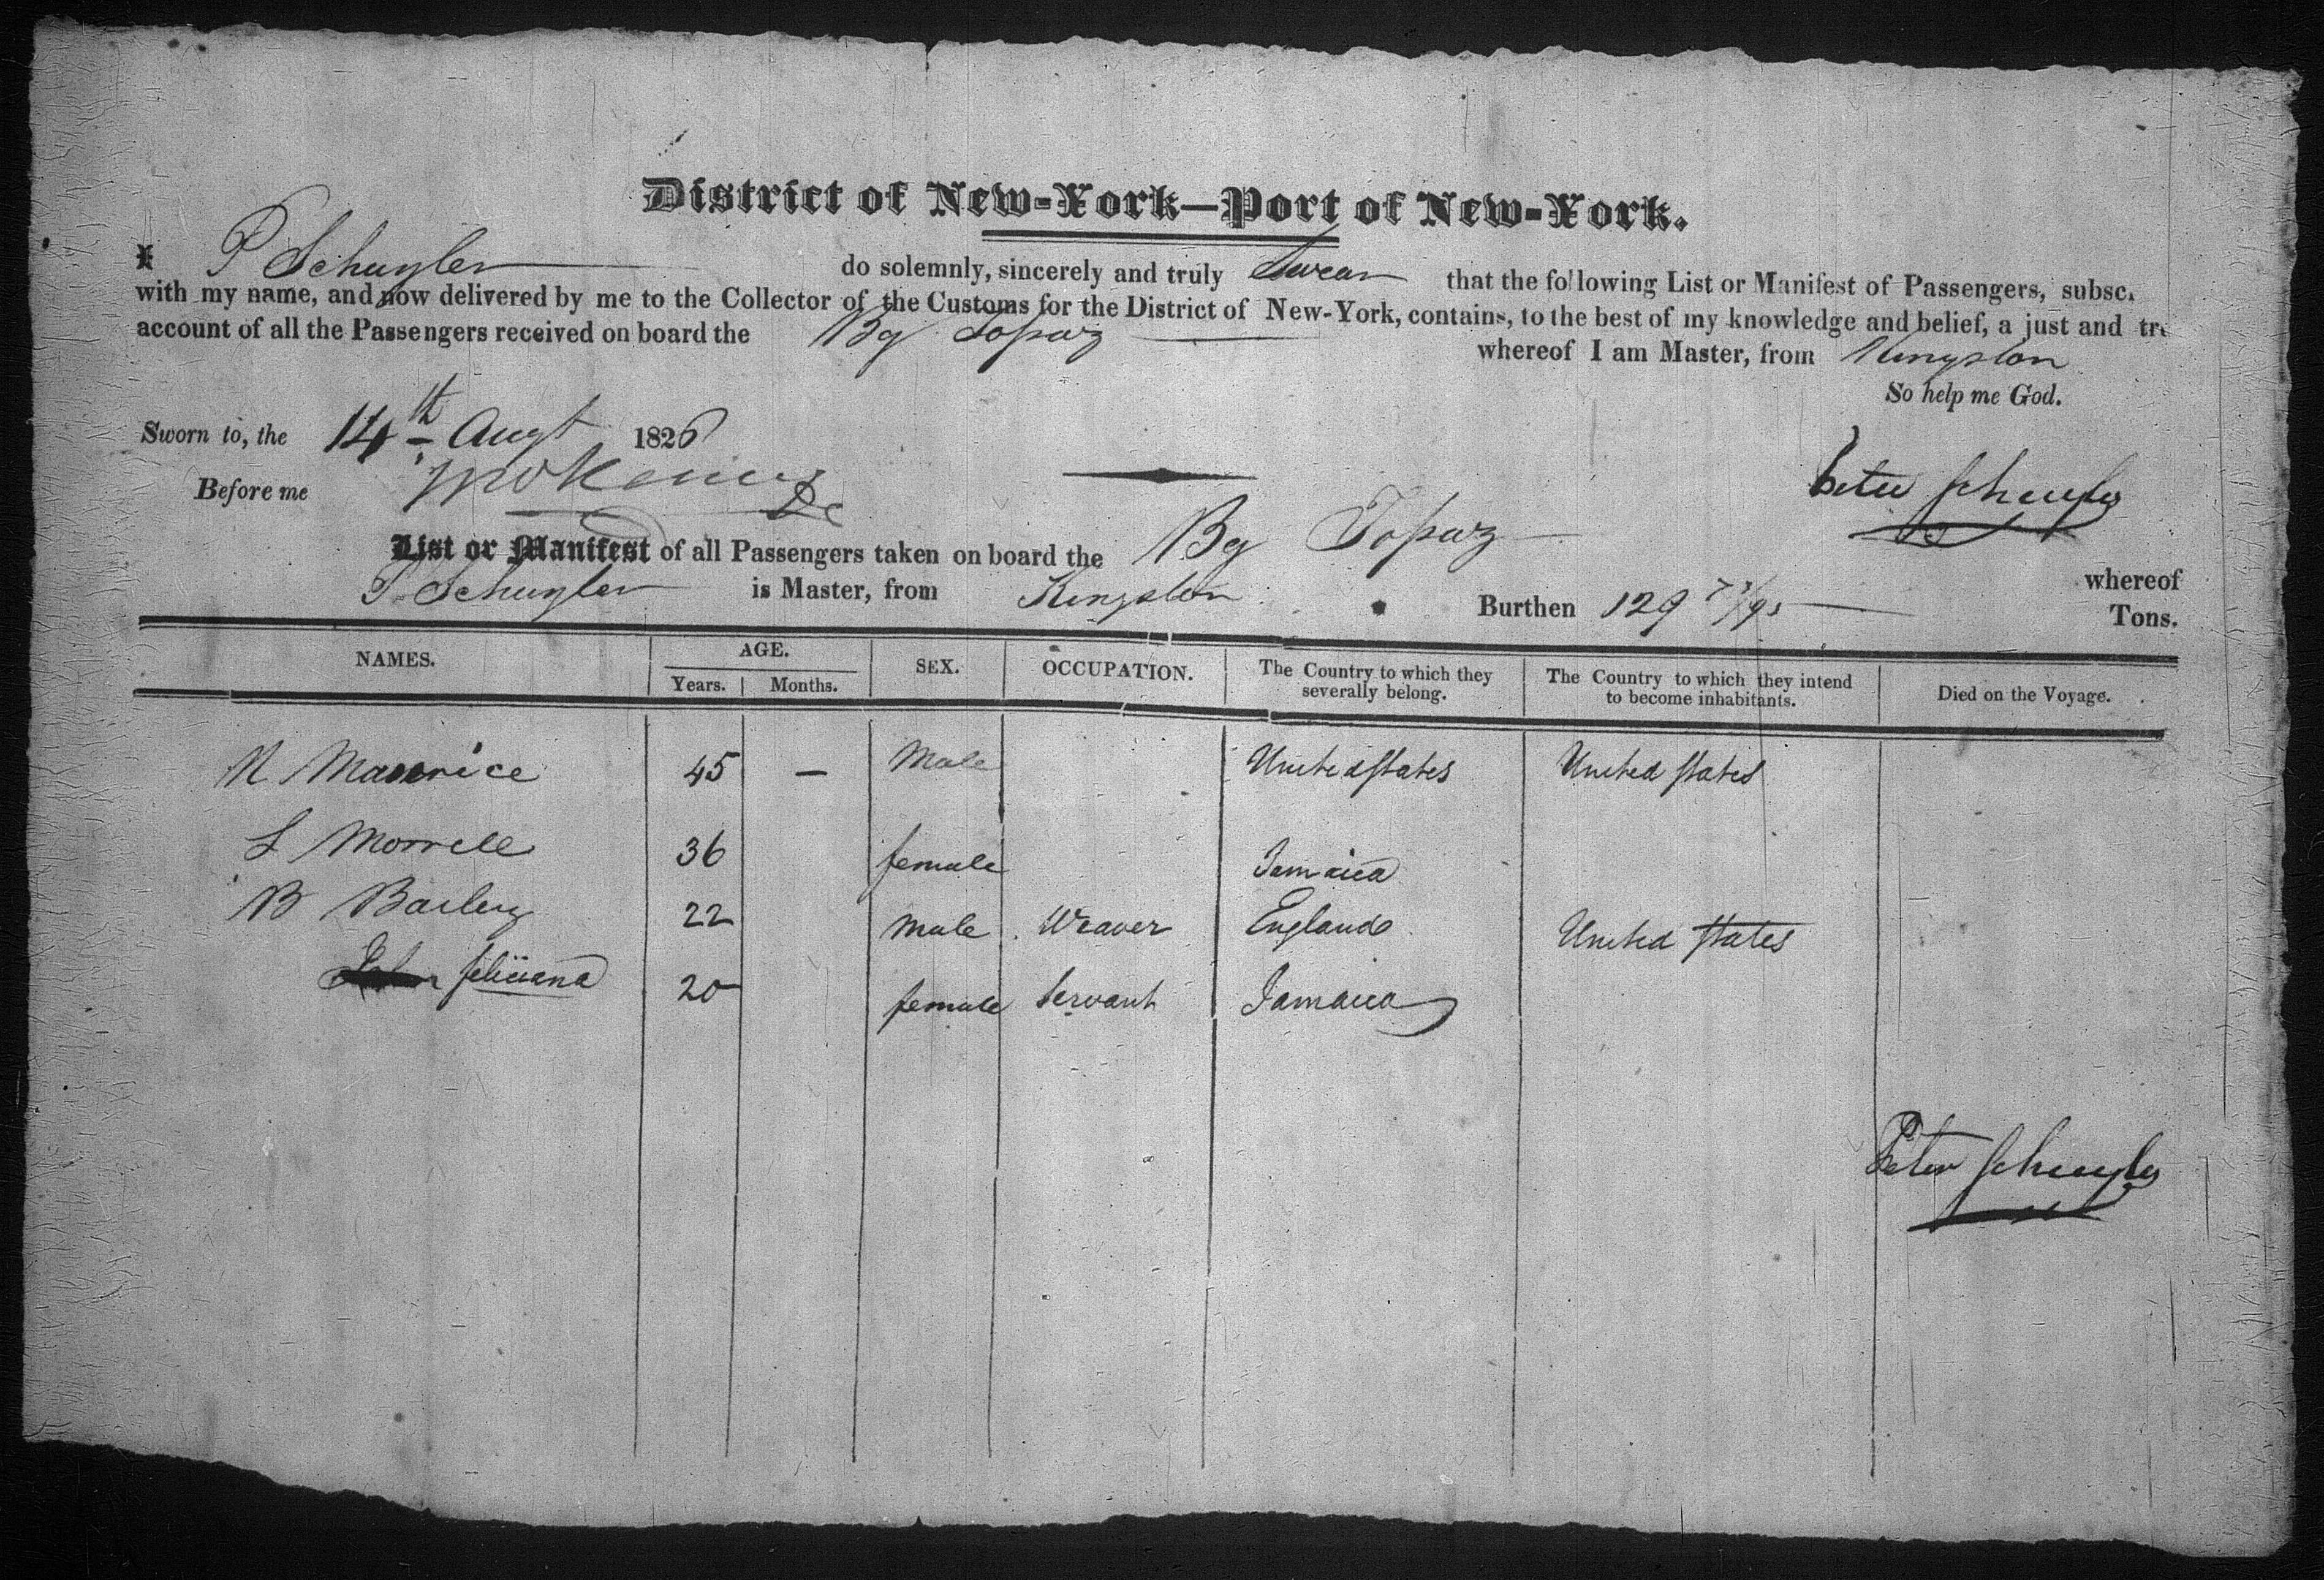 District of New-York—Port of New-York.
I P Schuyler do solemnly, sincerely and truly Swear that the following List or Manifest of Passengers, subsc
with my name, and now delivered by me to the Collector of the Customs for the District of New-York, contains, to the best of my knowledge and belief, a just and tr
account of all the Passengers received on board the Bg Topaz whereof I am Master, from Kingston
So help me God.
Sworn to, the 14th Augt 1826
Before me
Peter Schuyler
List or Manifest of all Passengers taken on board the Bg Topaz whereof
P Schuyler is Master, from Kingston Burthen 129 73/95 Tons.
NAMES. AGE. SEX. OCCUPATION. The Country to which they severally belong. The Country to which they intend to become inhabitants. Died on the Voyage.
Years. Months.
N Maurice 45 — Male United States United States
L Morrell 36 female Jamaica
B Barley 22 Male Weaver England United States
feliciana 20 female Servant Jamaica
Peter Schuyler